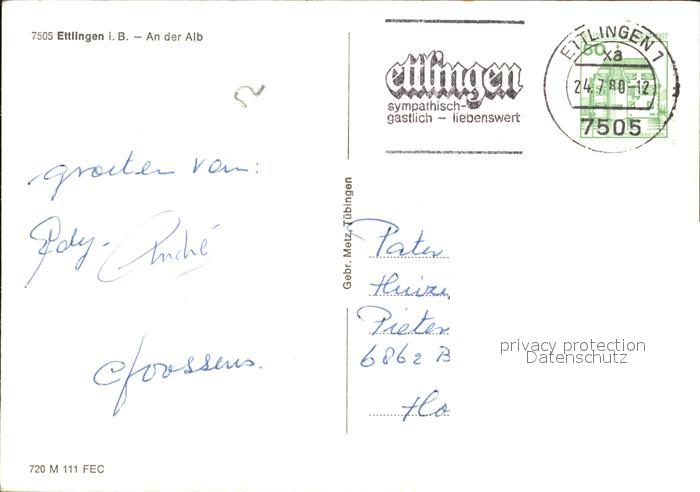 7505 Ettlingen i. B. – An der Alb
ettlingen
sympathisch-
gastlich – liebenswert
ETTLINGEN 1
xa
24.7.80-12
7505
60
groeten van:
André
Goossens.
Gebr. Metz, Tübingen
Pater
Huize
Pieter
6862 B
Ho
privacy protection
Datenschutz
720 M 111 FEC